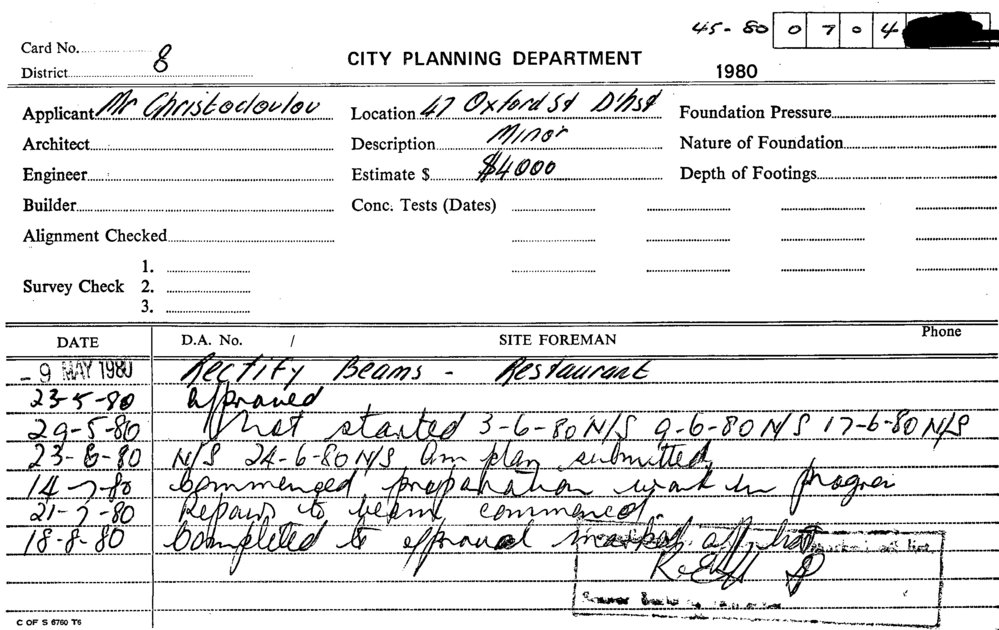 45-80 0 7 0 4
Card No.
District 8
CITY PLANNING DEPARTMENT
1980
Applicant Mr Christodoulou
Location 47 Oxford St D'hst
Foundation Pressure
Architect
Description Minor
Nature of Foundation
Engineer
Estimate $ $4000
Depth of Footings
Builder
Conc. Tests (Dates)
Alignment Checked
1.
Survey Check 2.
3.
DATE D.A. No. / SITE FOREMAN Phone
- 9 MAY 1980 Rectify Beams - Restaurant
23-5-80 approved
29-5-80 Not started 3-6-80 N/S 9-6-80 N/S 17-6-80 N/S
23-6-80 N/S 24-6-80 N/S Am plan submitted
14-7-80 Commenced preparation work in
21-7-80 Repairs to beam commenced.
18-8-80 Completed to approval marked off
C OF S 6760 T6